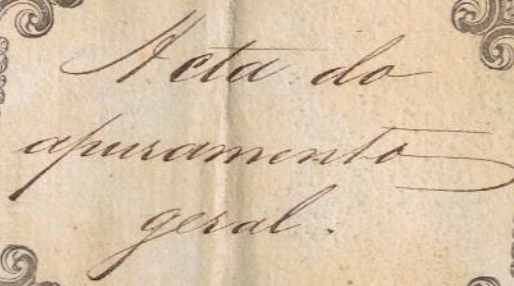 Acta do
apuramento
geral.